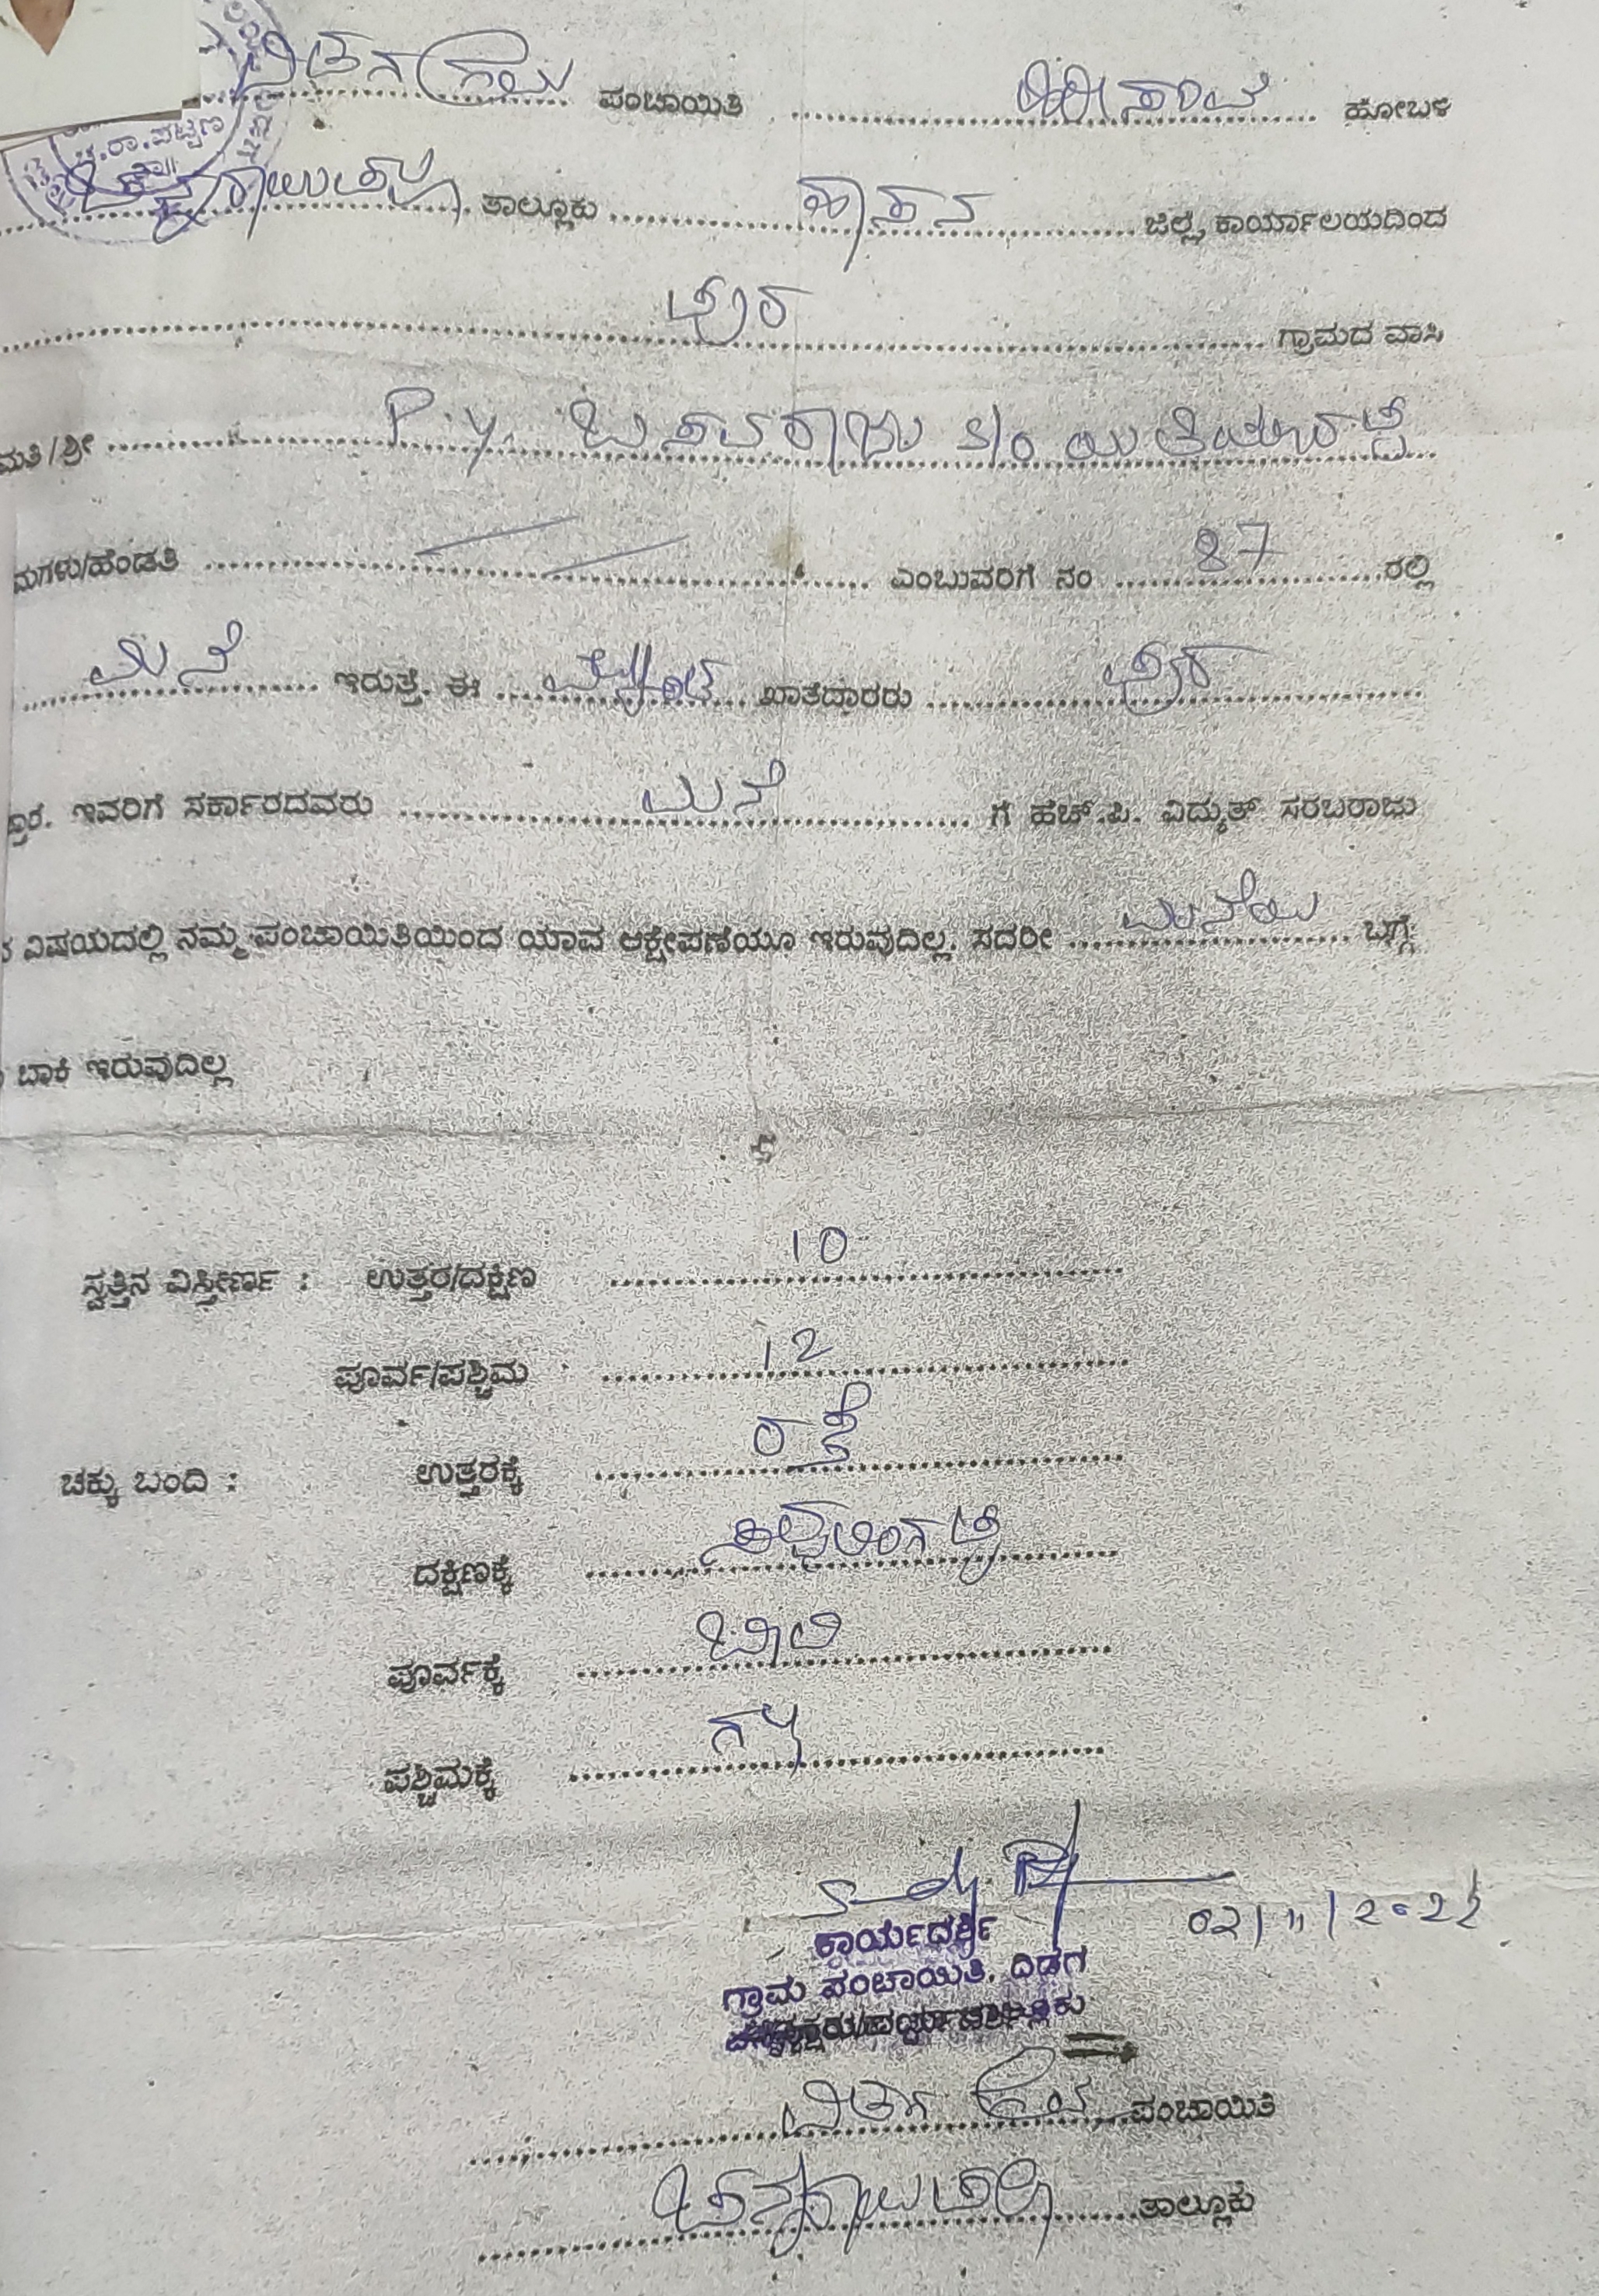 ದಿಡಗ ಗ್ರಾಮ ಪಂಚಾಯಿತಿ ಹಿರೀಸಾವೆ ಹೋಬಳಿ
ಚ.ರಾ.ಪಟ್ಟಣ
ತಾ||
ತಾಲ್ಲೂಕು ಹಾಸನ ಜಿಲ್ಲೆ, ಕಾರ್ಯಾಲಯದಿಂದ
ಪುರ ಗ್ರಾಮದ ವಾಸಿ
ಮತಿ/ಶ್ರೀ P.y. ಬಸವರಾಜು s/o
ಮಗಳು/ಹೆಂಡತಿ ಎಂಬುವರಿಗೆ ನಂ 87 ರಲ್ಲಿ
ಮನೆ ಇರುತ್ತೆ. ಈ ಖಾತೆದಾರರು ಪುರ
ಇವರಿಗೆ ಸರ್ಕಾರದವರು ಮನೆ ಗೆ ಹೆಚ್.ಪಿ. ವಿದ್ಯುತ್ ಸರಬರಾಜು
ವಿಷಯದಲ್ಲಿ ನಮ್ಮ ಪಂಚಾಯಿತಿಯಿಂದ ಯಾವ ಆಕ್ಷೇಪಣೆಯೂ ಇರುವುದಿಲ್ಲ. ಸದರೀ ಮನೆಯ ಬಗ್ಗೆ
ಬಾಕಿ ಇರುವುದಿಲ್ಲ
ಸ್ವತ್ತಿನ ವಿಸ್ತೀರ್ಣ : ಉತ್ತರ/ದಕ್ಷಿಣ 10
ಪೂರ್ವ/ಪಶ್ಚಿಮ 12
ಚಕ್ಕು ಬಂದಿ : ಉತ್ತರಕ್ಕೆ ರಸ್ತೆ
ದಕ್ಷಿಣಕ್ಕೆ
ಪೂರ್ವಕ್ಕೆ ಖಾಲಿ
ಪಶ್ಚಿಮಕ್ಕೆ
02/11/2022
ಕಾರ್ಯದರ್ಶಿ
ಗ್ರಾಮ ಪಂಚಾಯಿತಿ, ದಿಡಗ
ದಿಡಗ ಗ್ರಾಮ ಪಂಚಾಯಿತಿ
ಚನ್ನರಾಯಪಟ್ಟಣ ತಾಲ್ಲೂಕು